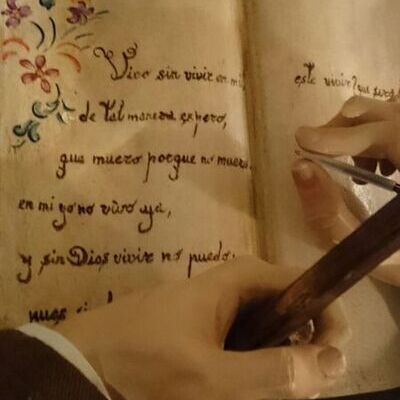 Vivo sin vivir en mi,
de tal manera espero,
que muero porque no muero.
en mi yo no vivo ya,
y sin Dios vivir no puedo:
pues
este vivir? que